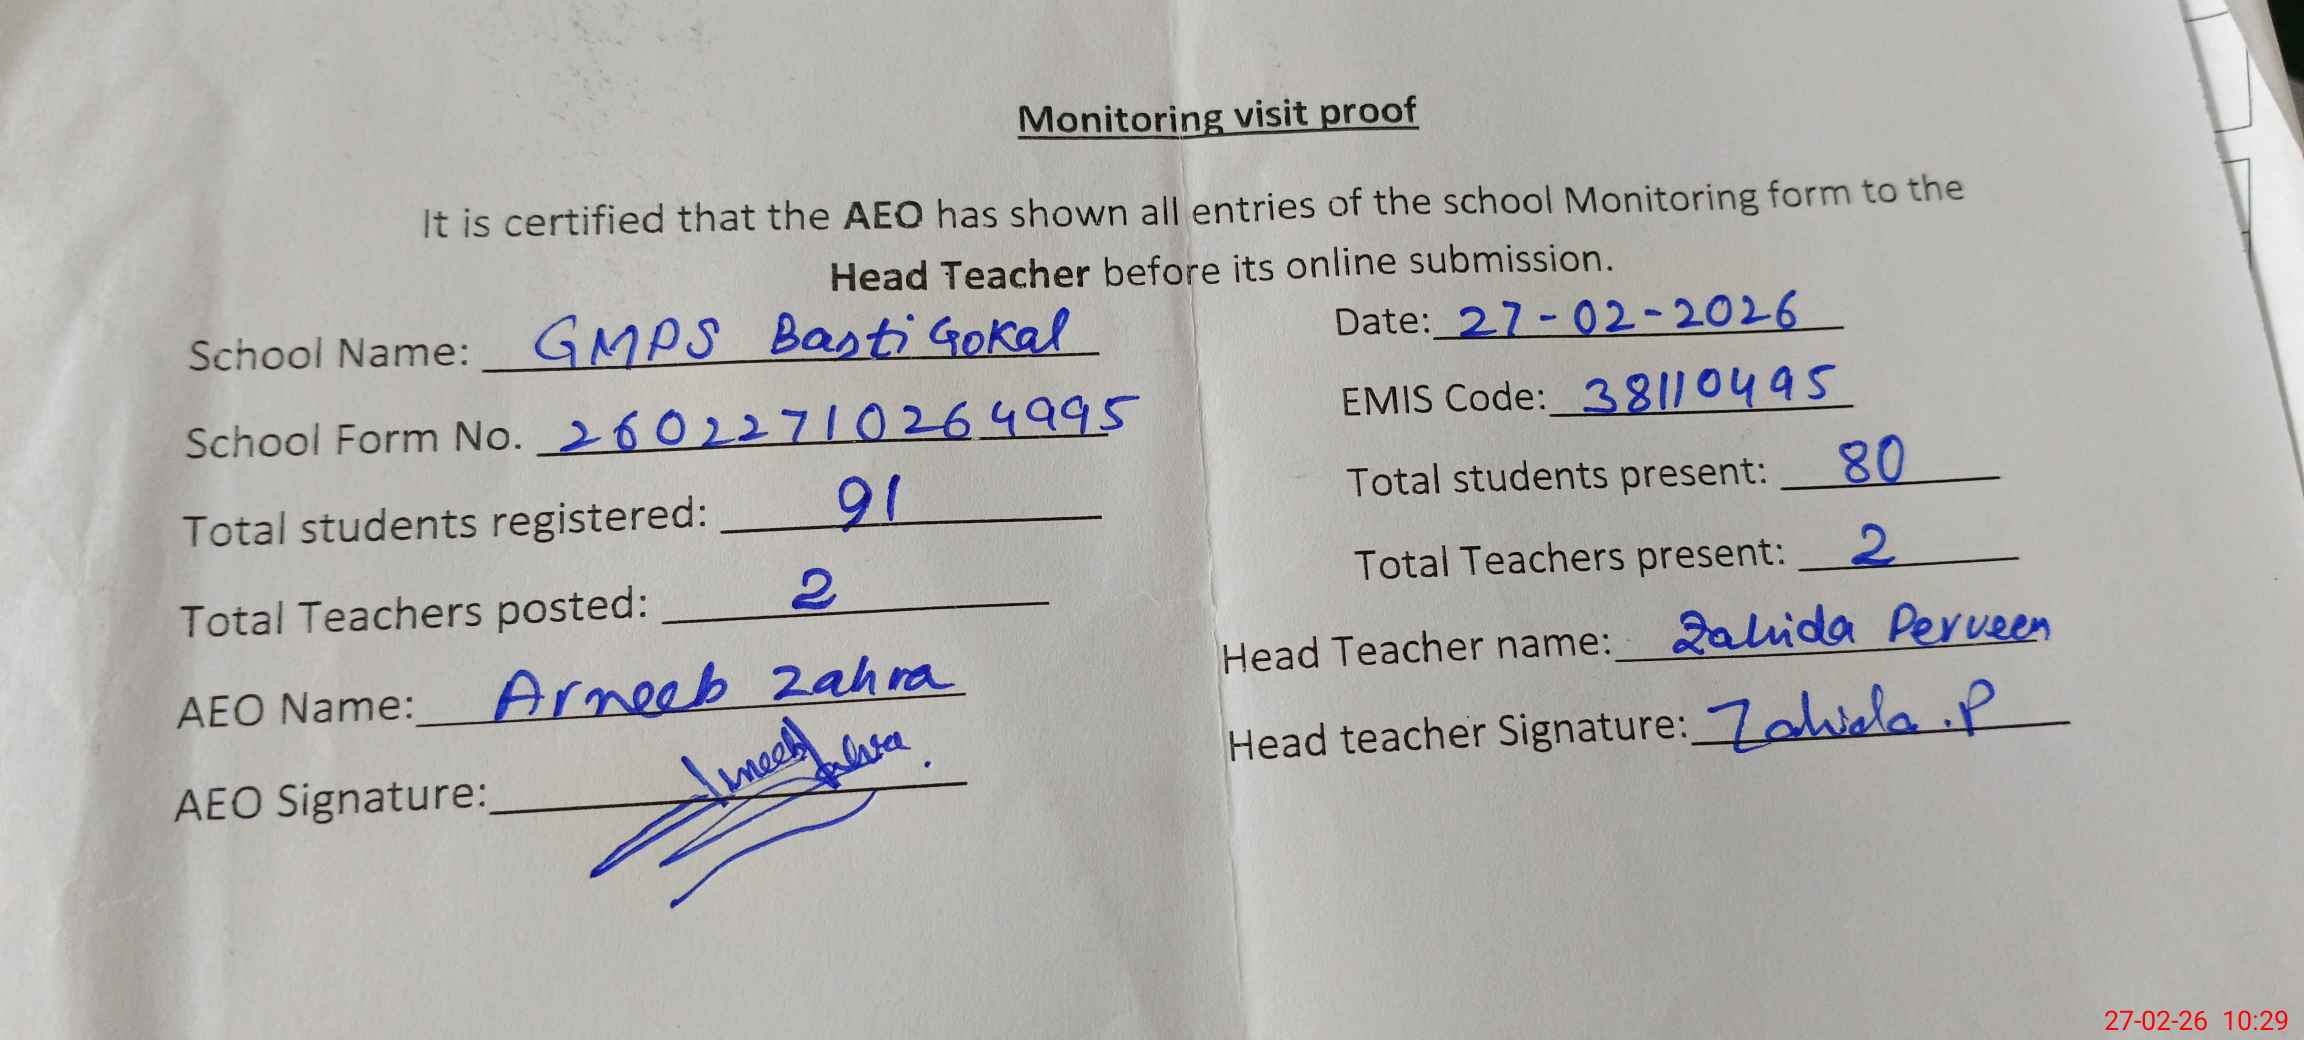 Monitoring visit proof
It is certified that the AEO has shown all entries of the school Monitoring form to the
Head Teacher before its online submission.
School Name: GMPS Basti Gokal
Date: 27-02-2026
School Form No. 26022710264995
EMIS Code: 38110495
Total students registered: 91
Total students present: 80
Total Teachers posted: 2
Total Teachers present: 2
AEO Name: Arneeb Zahra
Head Teacher name: Zahida Perveen
AEO Signature:
Head teacher Signature: Zahida.P
27-02-26 10:29